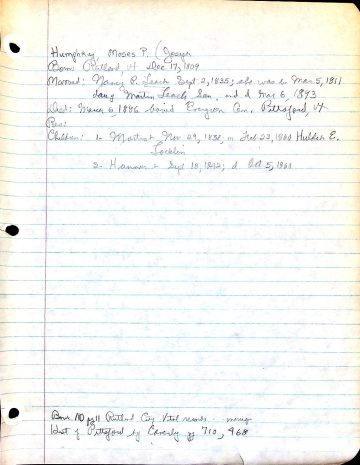 Humphrey, Moses P. (Joseph
Born: Rutland, Vt Dec 17, 1809
Married: Nancy P. Leach Sept 2, 1835; she was b. Mar 5, 1811
daug Martin Leach, Sen. and d Mar 6, 1893
Died: March 6, 1886 buried Evergreen Cem. Pittsford, Vt
Res:
Children: 1- Martin b Nov 29, 1838, m Feb 22, 1860 Huldah E.
2- Hannah b Sept 18, 1842; d Oct 5, 1861
Rutland Co. Vital records
Hist of Pittsford by Caverly pg 710, 468